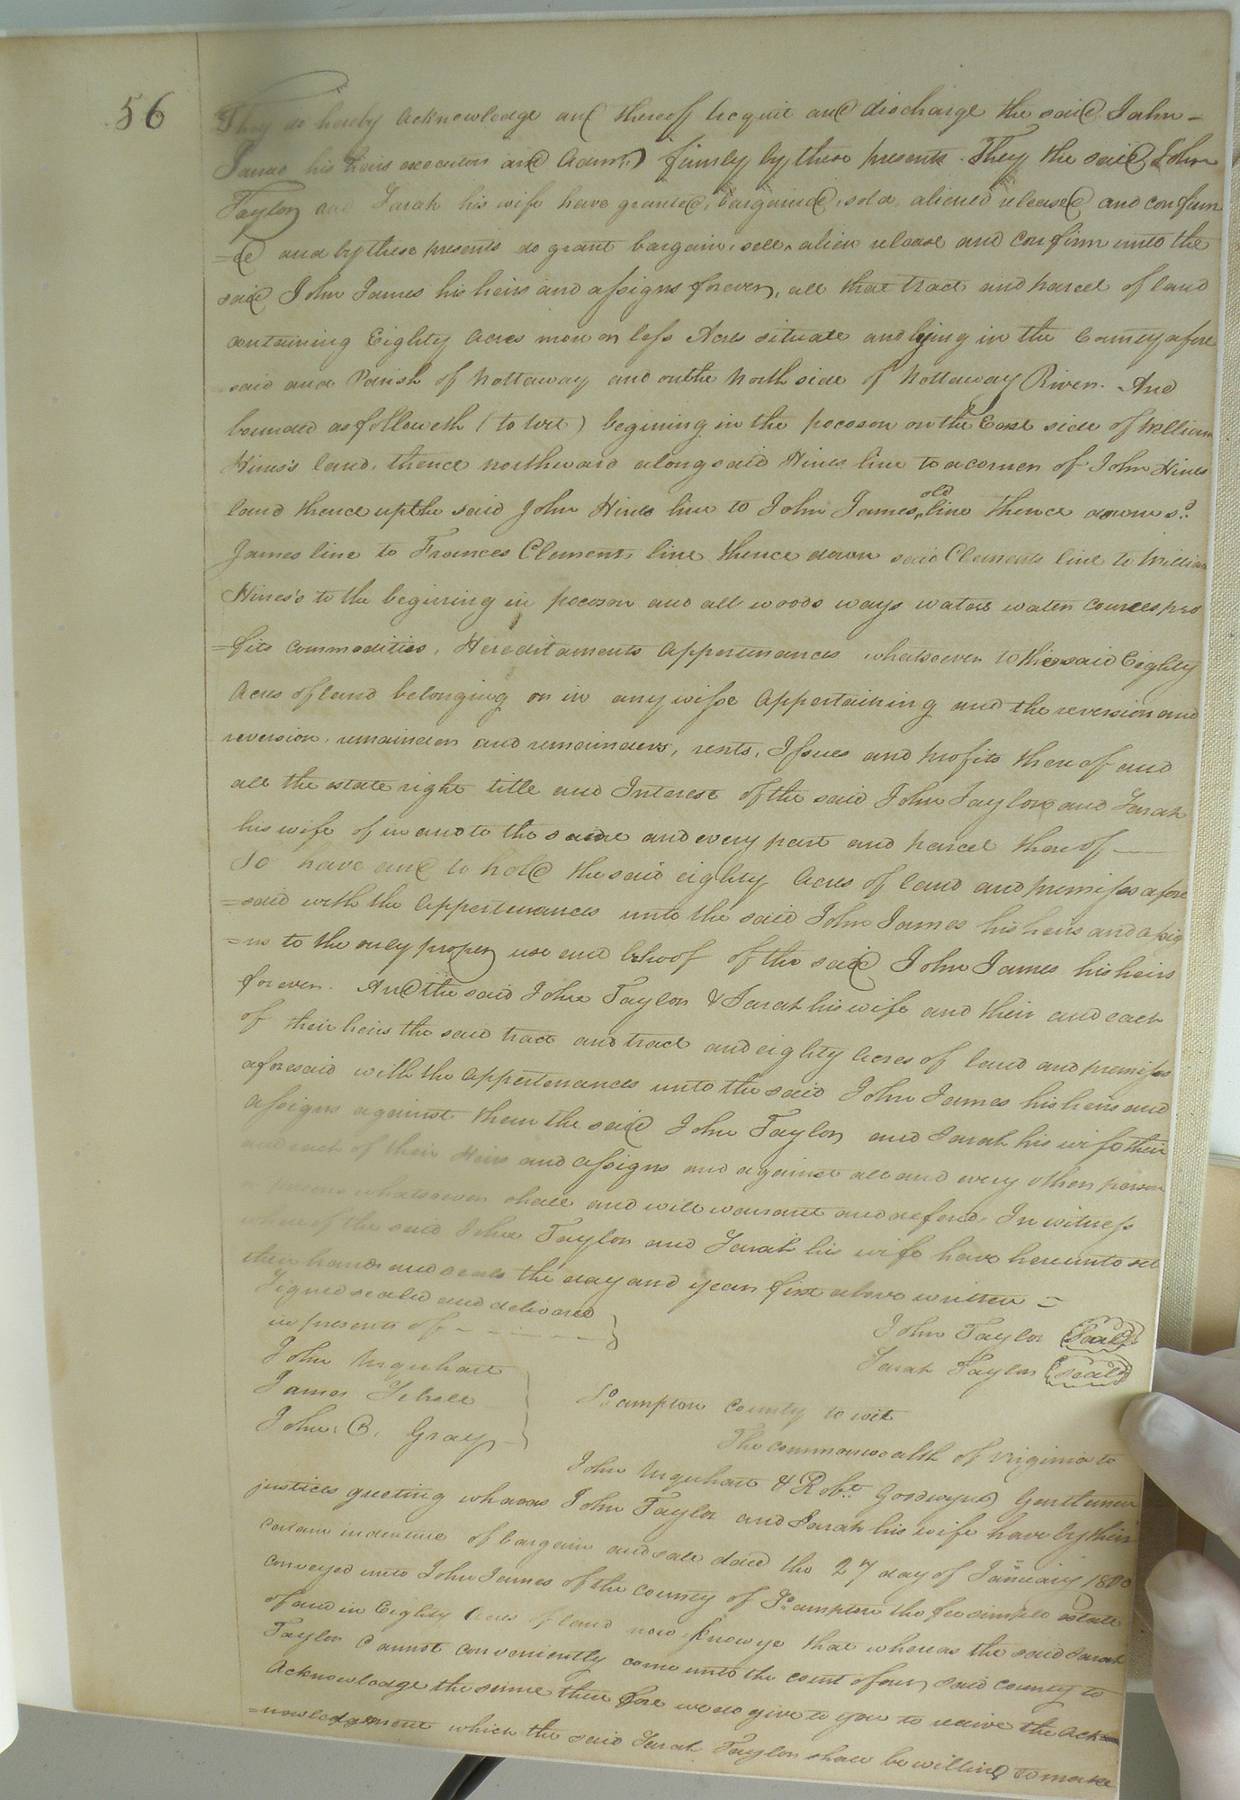 56
They do hereby acknowledge and thereof acquit and discharge the said John
James his heirs executors and Admrs firmly by these presents. They the said John
Taylor and Sarah his wife have granted, bargained, sold, aliened released and confirm
=ed and by these presents do grant bargain, sell, alien release and confirm unto the
said John James his heirs and assigns forever, all that tract and parcel of land
containing Eighty Acres more or less Acres situate and lying in the County afore
said and Parish of Nottaway and on the North side of Nottaway River. And
bounded as followeth (to wit) begining in the pocoson on the East side of William
Hines's land, thence northward along said Hines line to a corner of John Hines
land thence up the said John Hines line to John James old line thence down sd.
James line to Frances Clements line thence down said Clements line to William
Hines's to the begining in pocoson and all woods ways waters water courses pro
=fits commodities, Hereditaments Appertenances whatsoever to the said Eighty
Acres of land belonging or in any wise Appertaining and the reversion and
reversion, remainder and remainders, rents, Issues and profits there of and
all the estate right title and Interest of the said John Taylor and Sarah
his wife of in and to the same and every part and parcel there of
To have and to hold the said eighty Acres of land and premises afore
=said with the Appertenances unto the said John James his heirs and assig
=ns to the only proper use and behoof of the said John James his heirs
forever. And the said John Taylor & Sarah his wife and their and each
of their heirs the said tract and tract and eighty Acres of land and premises
aforesaid with the Appertenances unto the said John James his heirs and
assigns against them the said John Taylor and Sarah his wife their
and each of their Heirs and assigns and against all and every other person
persons whatsoever shall and will warrant and defend, In witness
where of the said John Taylor and Sarah his wife have hereunto set
their hands and seals the day and year first above written =
Signed sealed and delivered
in presents of
John Taylor (Seal)
Sarah Taylor (Seal)
John Urquhart
James
John. B. Gray
So.ampton County to wit
The commonwealth of Virginia to
John Urquhart & Robt. Goodwyn Gentlemen
justices greeting whereas John Taylor and Sarah his wife have by their
certain indenture of bargain and sale dated the 27 day of January 1800
conveyed unto John James of the county of So.ampton the fee simple estate
of and in Eighty Acres of land now know ye that whereas the said Sarah
Taylor Cannot conveniently come unto the court of our said County to
Acknowledge the same there fore we do give to you to receive the Ack
=nowledgement which the said Sarah Taylor shall be willing to make